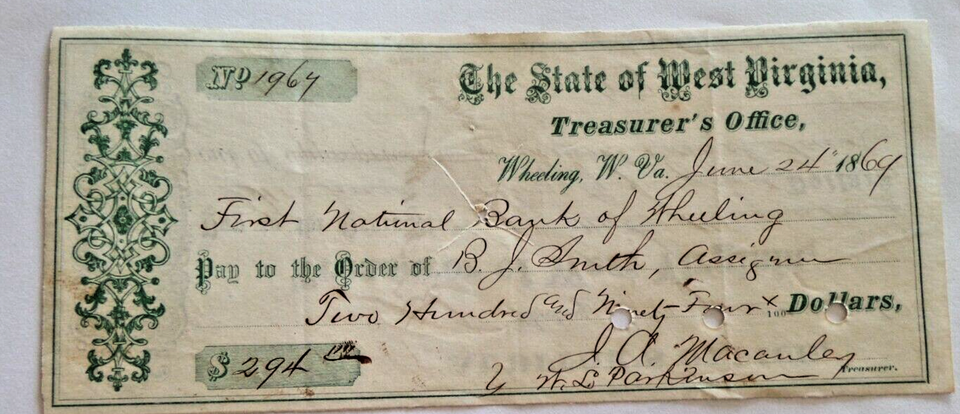 No 1967
The State of West Virginia,
Treasurer's Office,
Wheeling, W. Va. June 24" 1869
First National Bank of Wheeling
Pay to the Order of B. J. Smith, Assignee
Two Hundred and Ninety-Four x/100 Dollars,
$ 294
J. A. Macauley
Treasurer.
W. L. Parkinson